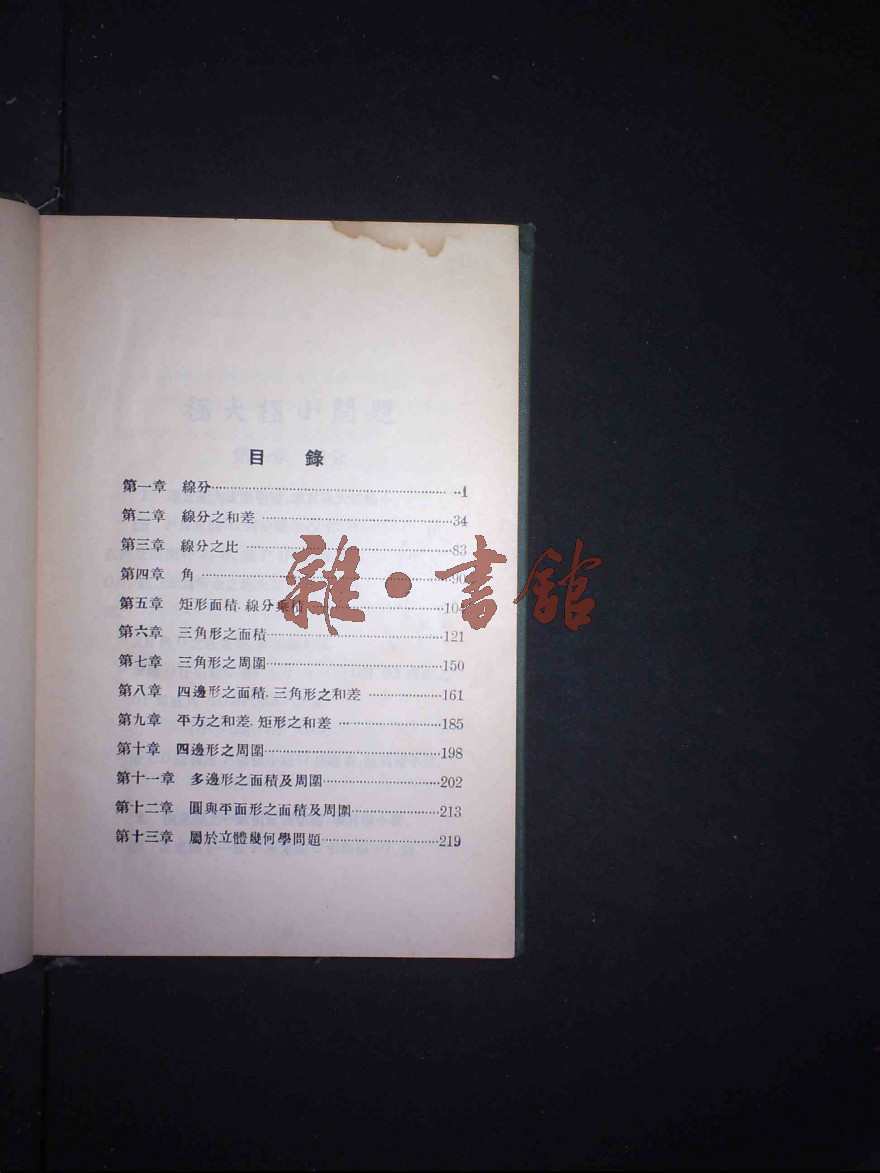 極大極小問題
目錄
第一章 線分 1
第二章 線分之和差 34
第三章 線分之比 83
第四章 角 90
第五章 矩形面積.線分乘積 10
第六章 三角形之面積 121
第七章 三角形之周圍 150
第八章 四邊形之面積.三角形之和差 161
第九章 平方之和差.矩形之和差 185
第十章 四邊形之周圍 198
第十一章 多邊形之面積及周圍 202
第十二章 圓與平面形之面積及周圍 213
第十三章 屬於立體幾何學問題 219
雜·書館